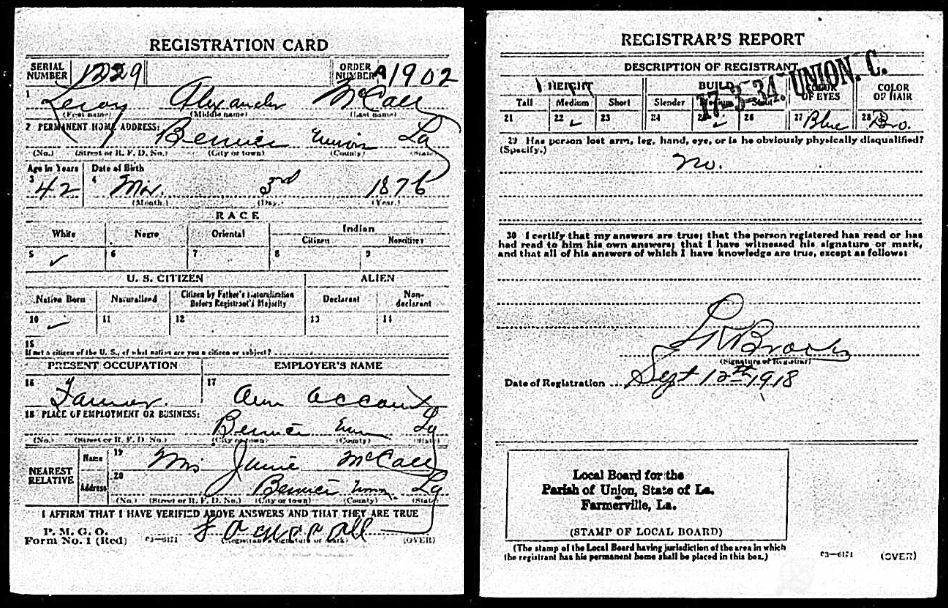 REGISTRATION CARD
SERIAL NUMBER 1229 ORDER NUMBER A1902
1 Leroy Alexander McCall
(First name) (Middle name) (Last name)
2 PERMANENT HOME ADDRESS: Bernice Union La
(No.) (Street or R. F. D. No.) (City or town) (County) (State)
Age in Years Date of Birth
3 42 4 3rd 1876
(Month.) (Day.) (Year.)
RACE
White Negro Oriental Indian
Citizen Noncitizen
5 ✓ 6 7 8 9
U. S. CITIZEN ALIEN
Native Born Naturalized Citizen by Father's Naturalization Before Registrant's Majority Declarant Non-declarant
10 ✓ 11 12 13 14
15
If not a citizen of the U. S., of what nation are you a citizen or subject?
PRESENT OCCUPATION EMPLOYER'S NAME
16 Farmer. 17 Own account
18 PLACE OF EMPLOYMENT OR BUSINESS:
Bernice Union La
(No.) (Street or R. F. D. No.) (City or town) (County) (State)
NEAREST RELATIVE Name 19 Mrs Janie McCall
Address 20 Bernice Union La
(No.) (Street or R. F. D. No.) (City or town) (County) (State)
I AFFIRM THAT I HAVE VERIFIED ABOVE ANSWERS AND THAT THEY ARE TRUE
P. M. G. O.
Form No. 1 (Red) 03—6171 (Registrant's signature or mark) (OVER)
REGISTRAR'S REPORT
DESCRIPTION OF REGISTRANT
HEIGHT BUILD COLOR OF EYES COLOR OF HAIR
Tall Medium Short Slender Medium Stout
21 22 ✓ 23 24 25 ✓ 26 27 Blue 28 Bro.
17-3-34. UNION. C.
29 Has person lost arm, leg, hand, eye, or is he obviously physically disqualified?
(Specify.)
No.
30 I certify that my answers are true; that the person registered has read or has
had read to him his own answers; that I have witnessed his signature or mark,
and that all of his answers of which I have knowledge are true, except as follows:
(Signature of Registrar)
Date of Registration Sept 12th 1918
Local Board for the
Parish of Union, State of La.
Farmerville, La.
(STAMP OF LOCAL BOARD)
(The stamp of the Local Board having jurisdiction of the area in which
the registrant has his permanent home shall be placed in this box.)
03—6171 (OVER)